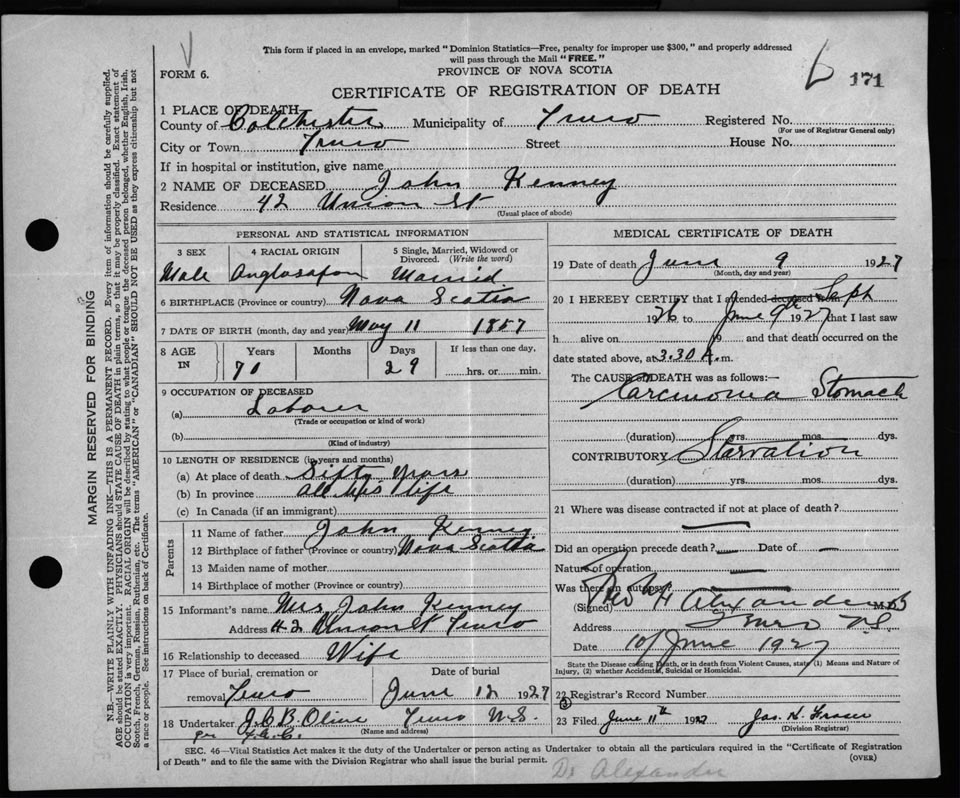 This form if placed in an envelope, marked "Dominion Statistics—Free, penalty for improper use $300," and properly addressed
will pass through the Mail "FREE."
FORM 6.
PROVINCE OF NOVA SCOTIA
171
CERTIFICATE OF REGISTRATION OF DEATH
1 PLACE OF DEATH
County of Colchester Municipality of Truro Registered No.
(For use of Registrar General only)
City or Town Truro Street House No.
If in hospital or institution, give name
2 NAME OF DECEASED John Kenney
Residence 42 Union St
(Usual place of abode)
PERSONAL AND STATISTICAL INFORMATION
3 SEX 4 RACIAL ORIGIN 5 Single, Married, Widowed or Divorced. (Write the word)
Male Anglosaxon Married
6 BIRTHPLACE (Province or country) Nova Scotia
7 DATE OF BIRTH (month, day and year) May 11 1857
8 AGE IN Years Months Days If less than one day,
70 29 hrs. or min.
9 OCCUPATION OF DECEASED
(a) Laborer
(Trade or occupation or kind of work)
(b)
(Kind of industry)
10 LENGTH OF RESIDENCE (in years and months)
(a) At place of death Fifty Years
(b) In province All his life
(c) In Canada (if an immigrant)
Parents
11 Name of father John Kenney
12 Birthplace of father (Province or country) Nova Scotia
13 Maiden name of mother
14 Birthplace of mother (Province or country)
15 Informant's name Mrs John Kenney
Address 42 Union St Truro
16 Relationship to deceased Wife
17 Place of burial, cremation or removal Truro
Date of burial June 12 1927
18 Undertaker J.C.B. Olive Truro N.S.
(Name and address)
per
MEDICAL CERTIFICATE OF DEATH
19 Date of death June 9 1927
(Month, day and year)
20 I HEREBY CERTIFY that I attended deceased from Sept
1926 to June 9th 1927 that I last saw
h alive on 19 and that death occurred on the
date stated above, at 3.30 A.m.
The CAUSE OF DEATH was as follows:—
Carcinoma Stomach
(duration) yrs. mos. dys.
CONTRIBUTORY Starvation
(duration) yrs. mos. dys.
21 Where was disease contracted if not at place of death?
Did an operation precede death? — Date of —
Nature of operation —
Was there an autopsy?
(Signed) H Alexander M.D.
Address Truro N.S.
Date 10/June 1927
State the Disease causing Death, or in death from Violent Causes, state (1) Means and Nature of
Injury, (2) whether Accidental, Suicidal or Homicidal.
22 Registrar's Record Number
23 Filed June 11th 1927 Jas. H. Fraser
(Division Registrar)
SEC. 46—Vital Statistics Act makes it the duty of the Undertaker or person acting as Undertaker to obtain all the particulars required in the "Certificate of Registration
of Death" and to file the same with the Division Registrar who shall issue the burial permit.
(OVER)
Dr Alexander
MARGIN RESERVED FOR BINDING
N.B.—WRITE PLAINLY WITH UNFADING INK—THIS IS A PERMANENT RECORD. Every item of information should be carefully supplied.
AGE should be stated EXACTLY. PHYSICIANS should STATE CAUSE OF DEATH in plain terms, so that it may be properly classified. Exact statement of
OCCUPATION is very important. RACIAL ORIGIN will be described by stating to what people or tongue the deceased person belonged, whether English, Irish,
Scotch, French, German, Russian, Ruthenian, etc. The terms "AMERICAN" or "CANADIAN" SHOULD NOT BE USED as they express citizenship but not
a race or people. See instructions on back of Certificate.